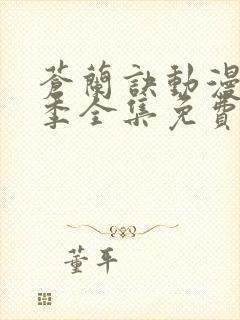 蒼蘭訣動漫
季全集免費
董平